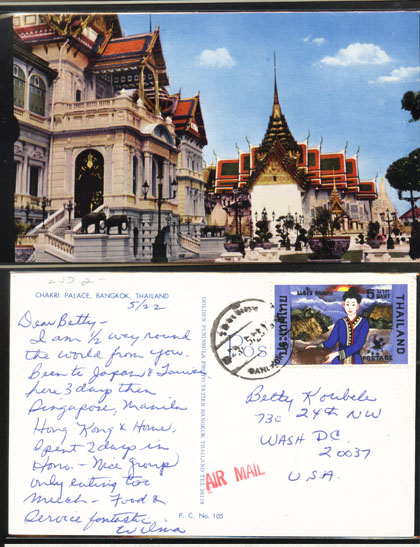 LUD 2-
CHAKRI PALACE, BANGKOK, THAILAND
5/22
Dear Betty -
I am ½ way round
the world from you.
Been to Japan & Taiwan,
here 3 days then
Singapore, Manila
Hong Kong & Home.
Spent 2 days in
Hono. - Nice group
only eating too
much - Food &
Service fantastic
Wilma
P. C. No. 105
GOLDEN PENINSULA PHOTO TATIEN BANGKOK THAILAND TEL.
AIR MAIL
ประเทศไทย
THAILAND
POSTAGE
BAHT
Betty
730 24th NW
WASH DC.
20037
U.S.A.